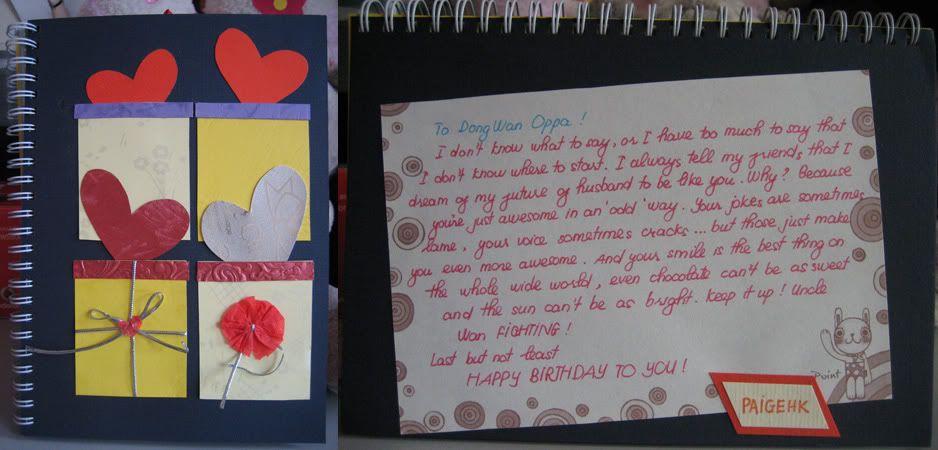 To DongWan Oppa!
I don't know what to say, or I have too much to say that
I don't know where to start. I always tell my friends that I
dream of my future of husband to be like you. Why? Because
you're just awesome in an 'odd' way. Your jokes are sometimes
lame, your voice sometimes cracks... but those just make
you even more awesome. And your smile is the best thing on
the whole wide world, even chocolate can't be as sweet
and the sun can't be as bright. Keep it up! Uncle
Wan FiGHTiNG!
Last but not least
HAPPY BIRTHDAY TO YOU!
Point
PAIGEHK